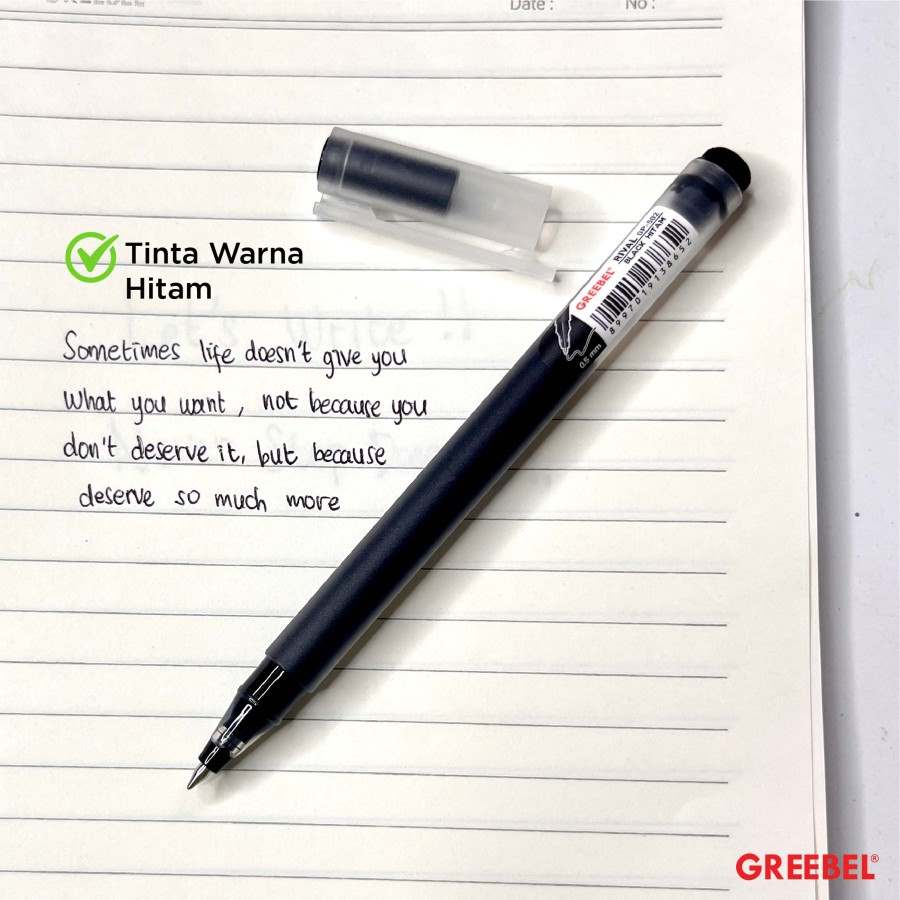 Date :
No :
Tinta Warna
Hitam
Sometimes life doesn't give you
What you want, not because you
don't deserve it, but because
deserve so much more
GREEBEL® RIVAL GP-502
BLACK HITAM
8997019138652
0.5 mm
GREEBEL®